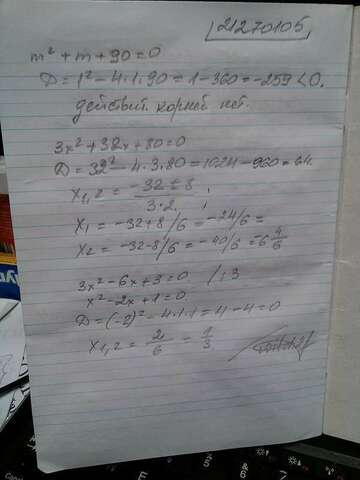 21270105
m² + m + 90 = 0
D = 1² - 4·1·90 = 1 - 360 = -259 < 0.
действит. корней нет.
3x² + 32x + 80 = 0
D = 32² - 4·3·80 = 1024 - 960 = 64.
x₁,₂ = (-32 ± 8)/(3·2) ;
x₁ = -32+8/6 = -24/6 =
x₂ = -32-8/6 = -40/6 = 6 4/6
3x² - 6x + 3 = 0 /:3
x² - 2x + 1 = 0
D = (-2)² - 4·1·1 = 4 - 4 = 0
x₁,₂ = 2/6 = 1/3